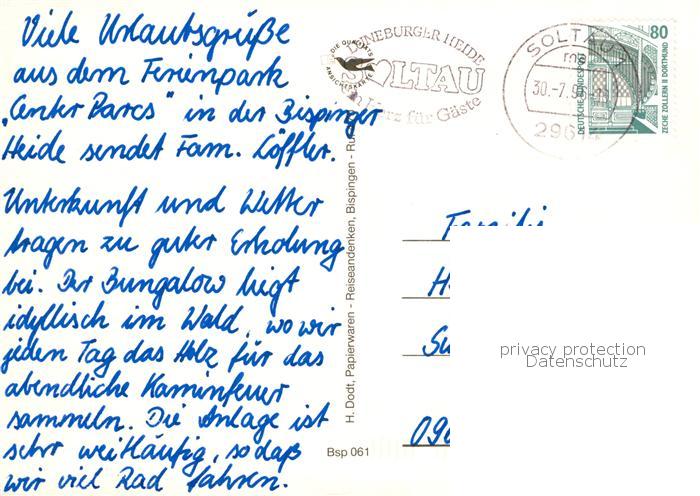 Viele Urlaubsgrüße
aus dem Ferienpark
„Center Parcs" in der Bispinger
Heide sendet Fam. Löffler.
Unterkunft und Wetter
tragen zu guter Erholung
bei. Der Bungalow liegt
idyllisch im Wald, wo wir
jeden Tag das Holz für das
abendliche Kaminfeuer
sammeln. Die Anlage ist
sehr weitläufig, sodaß
wir viel Rad fahren.
H. Dodt, Papierwaren - Reiseandenken, Bispingen - Ru
Bsp 061
DIE QUALITÄTS
ANSICHTSKARTE
LÜNEBURGER HEIDE
SOLTAU
Herz für Gäste
SOLTAU 1
mg
30.-7.9
29614
80
DEUTSCHE BUNDESPOST
ZECHE ZOLLERN II DORTMUND
Famili
H
Su
090
privacy protection
Datenschutz